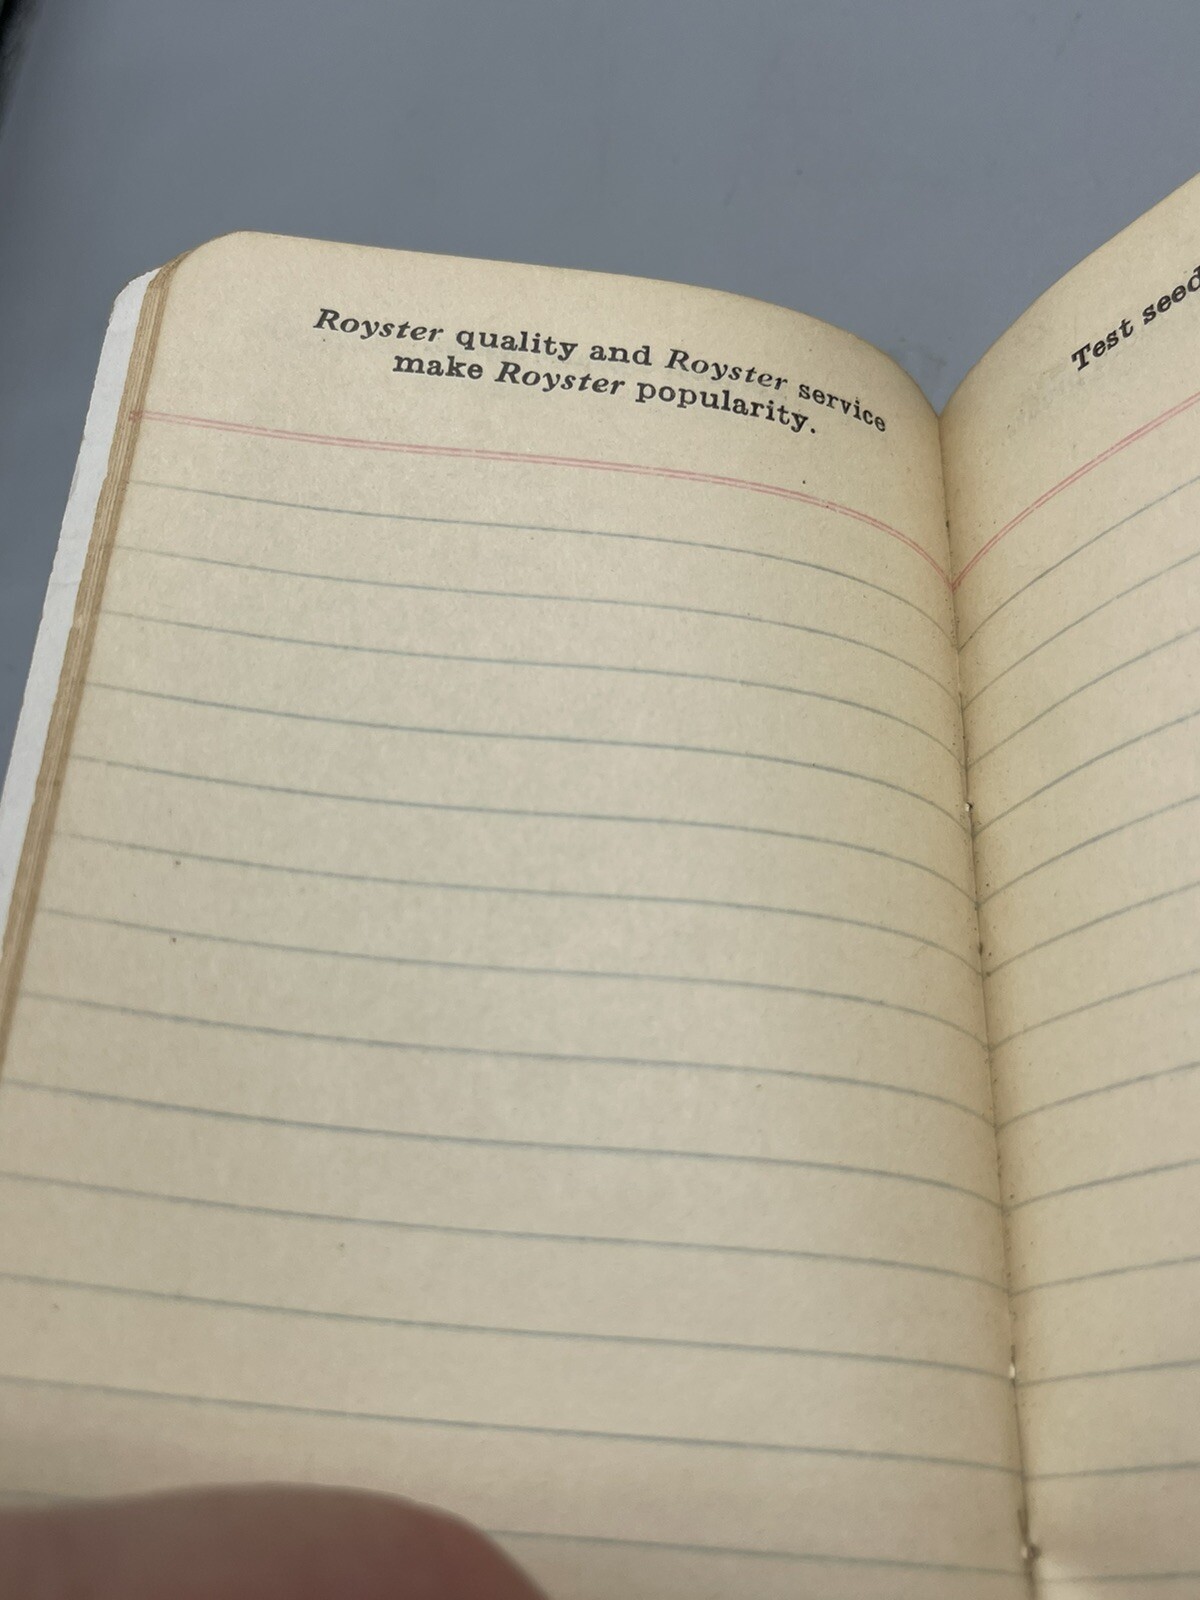 Royster quality and Royster service
make Royster popularity.
Test seed